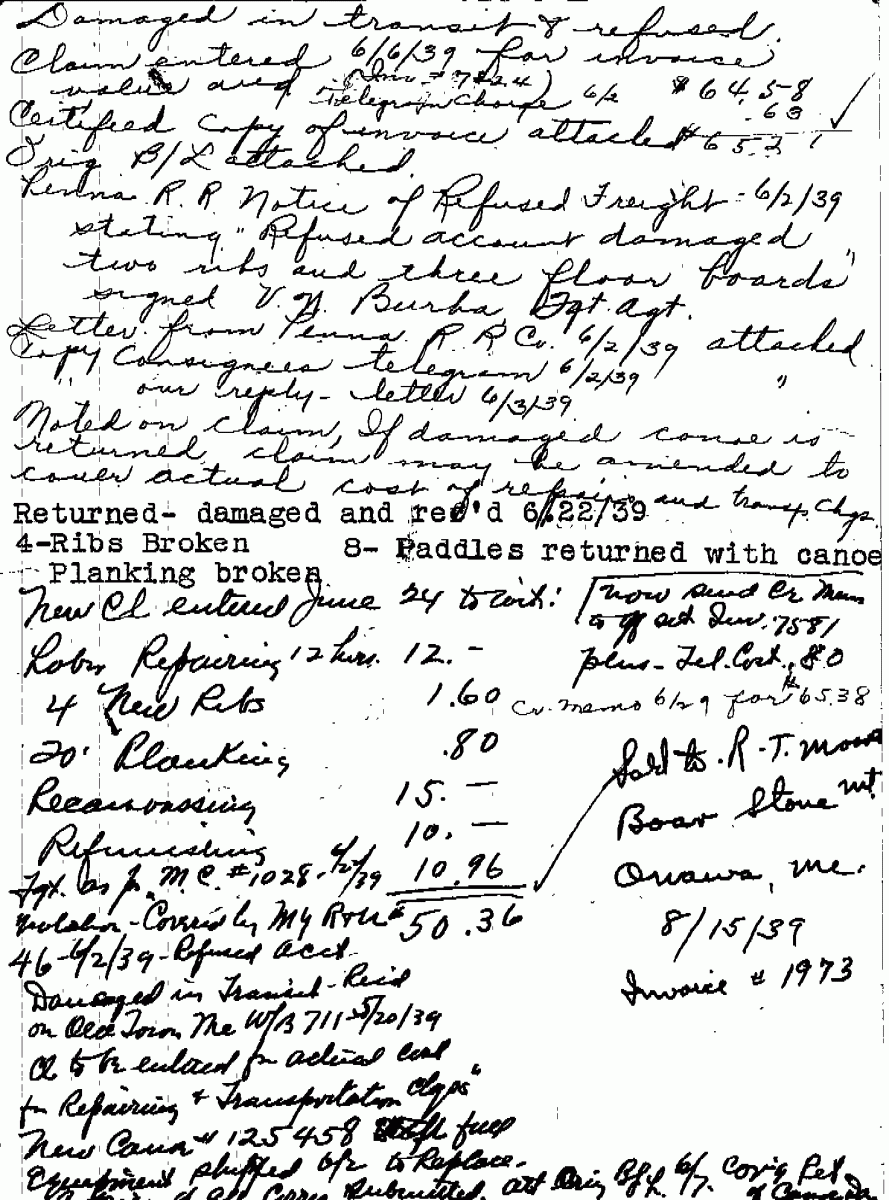 Damaged in transit & refused.
Claim entered 6/6/39 for invoice
value and (Inv # 7424) $64.58
Telegram Charge 6/2 .63
Certified Copy of invoice attached $65.21
Orig B/L attached.
Penna R.R Notice of Refused Freight - 6/2/39
stating "Refused account damaged
two ribs and three floor boards"
signed V. N. Burba Fgt. Agt.
Letter from Penna R R Co. 6/2/39 attached
Copy Consignees telegram 6/2/39
" our reply - letter 6/3/39 "
Noted on claim, If damaged canoe is
returned, claim may be amended to
cover actual cost of repairs and transp. Chgs.
Returned- damaged and rec'd 6/22/39
4-Ribs Broken 8- Paddles returned with canoe
Planking broken
New Cl entered June 24 to wit:
now send Cr Mem
to off set Inv. 7581
plus - Tel. Cost. .80
Labor Repairing 12 hrs. 12.-
4 New Ribs 1.60
Cr. memo 6/29 for $65.38
20' Planking .80
Recanvassing 15.-
Refinishing 10.-
Fgt. as pr. M.C. #1028 - 6/2/39 10.96
50.36
Sold to R. T. Moore
Boar Stone Mt.
Onawa, Me.
8/15/39
Invoice # 1973
Notation - Covered by My R
46 - 6/2/39 - Refused Acct
Damaged in Transit - Rec'd
on Old Town Me W/B 711 5/20/39
Cl to be entered for actual cost
for Repairing & Transportation Chgs"
New Canoe # 125458 full
Equipment shipped 6/2 to Replace.
Submitted, att Orig B/L 6/7.